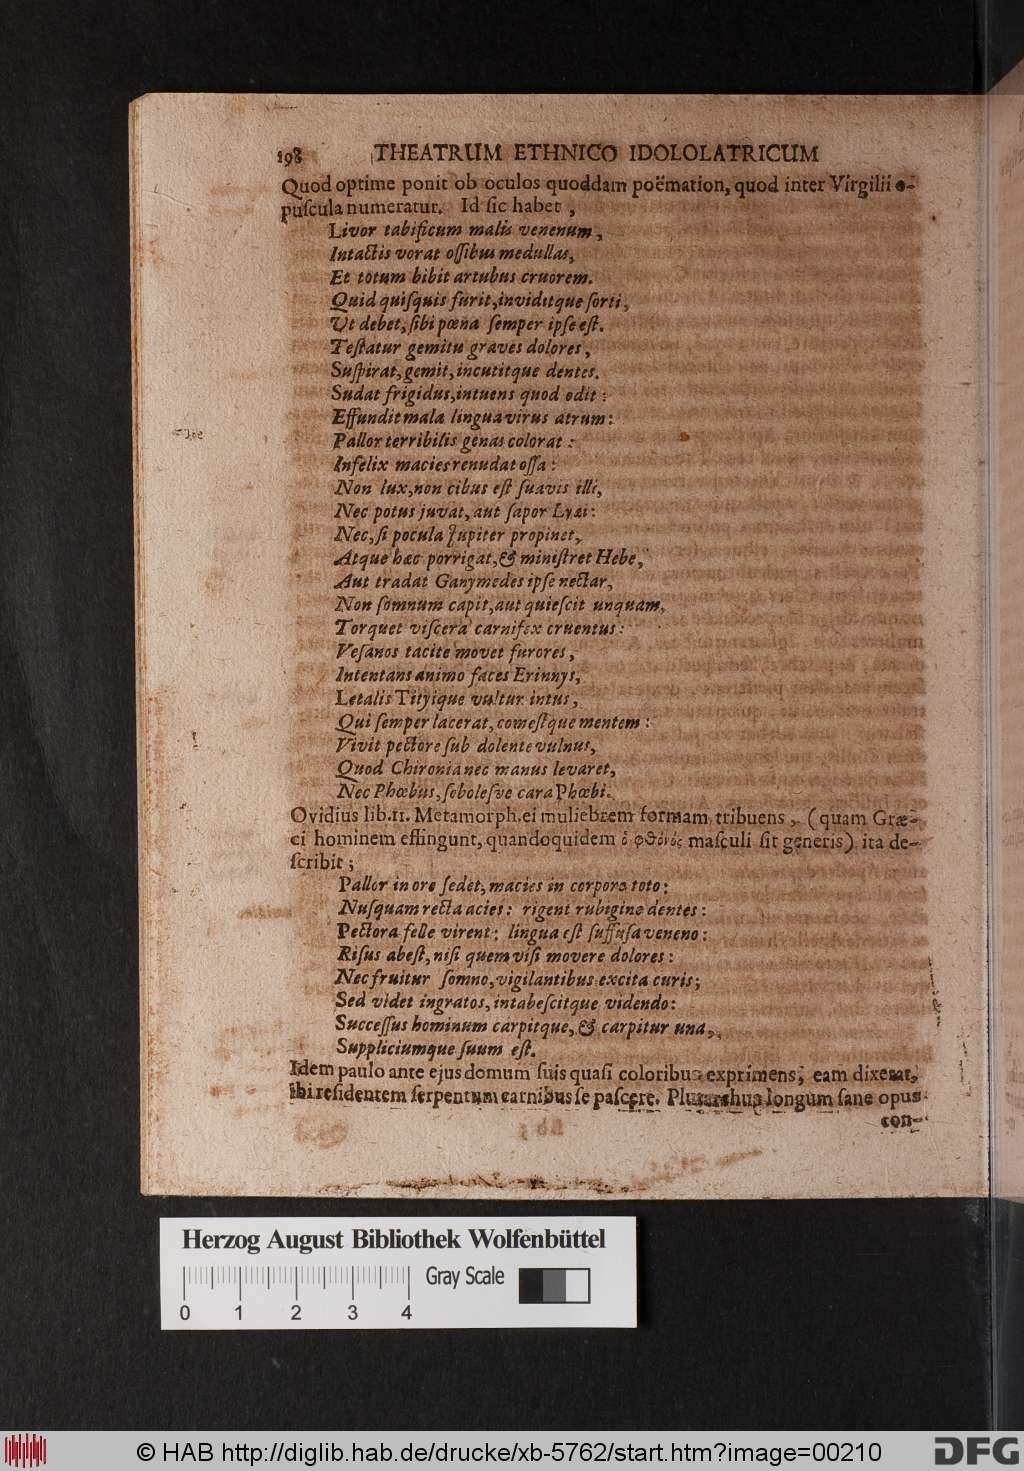 198 THEATRUM ETHNICO IDOLOLATRICUM
Quod optime ponit ob oculos quoddam poëmation, quod inter Virgilii o-
puſcula numeratur. Id ſic habet,
Livor tabificum malis venenum,
Intactis vorat oſſibus medullas,
Et totum bibit artubus cruorem.
Quid quiſquis furit, inviditque ſorti,
Ut debet, ſibi pœna ſemper ipſe eſt.
Teſtatur gemitu graves dolores,
Suſpirat, gemit, incutitque dentes.
Sudat frigidus, intuens quod odit:
Effundit mala lingua virus atrum:
Pallor terribilis genas colorat:
Infelix macies renudat oſſa:
Non lux, non cibus eſt ſuavis illi,
Nec potus juvat, aut ſapor Lyæi:
Nec, ſi pocula Jupiter propinet,
Atque hæc porrigat, & miniſtret Hebe,
Aut tradat Ganymedes ipſe nectar,
Non ſomnum capit, aut quieſcit unquam,
Torquet viſcera carnifex cruentus:
Veſanos tacite movet furores,
Intentans animo faces Erinnys,
Letalis Tityique vultur intus,
Qui ſemper lacerat, comeſtque mentem:
Vivit pectore ſub dolente vulnus,
Quod Chironia nec manus levaret,
Nec Phœbus, ſoboleſve cara Phœbi.
Ovidius lib. 11. Metamorph. ei muliebrem formam tribuens, (quam Græ-
ci hominem effingunt, quandoquidem ὁ φθόνος maſculi ſit generis) ita de-
ſcribit;
Pallor in ore ſedet, macies in corpore toto:
Nuſquam recta acies: rigent rubigine dentes:
Pectora felle virent: lingua eſt ſuffuſa veneno:
Riſus abeſt, niſi quem viſi movere dolores:
Nec fruitur ſomno, vigilantibus excita curis;
Sed videt ingratos, intabeſcitque videndo:
Succeſſus hominum carpitque, & carpitur una,
Suppliciumque ſuum eſt.
Idem paulo ante ejus domum ſuis quaſi coloribus exprimens, eam dixerat,
ibi reſidentem ſerpentum carnibus ſe paſcere. Plutarchus longum ſane opus
con-
Herzog August Bibliothek Wolfenbüttel
Gray Scale
0 1 2 3 4
© HAB http://diglib.hab.de/drucke/xb-5762/start.htm?image=00210
DFG